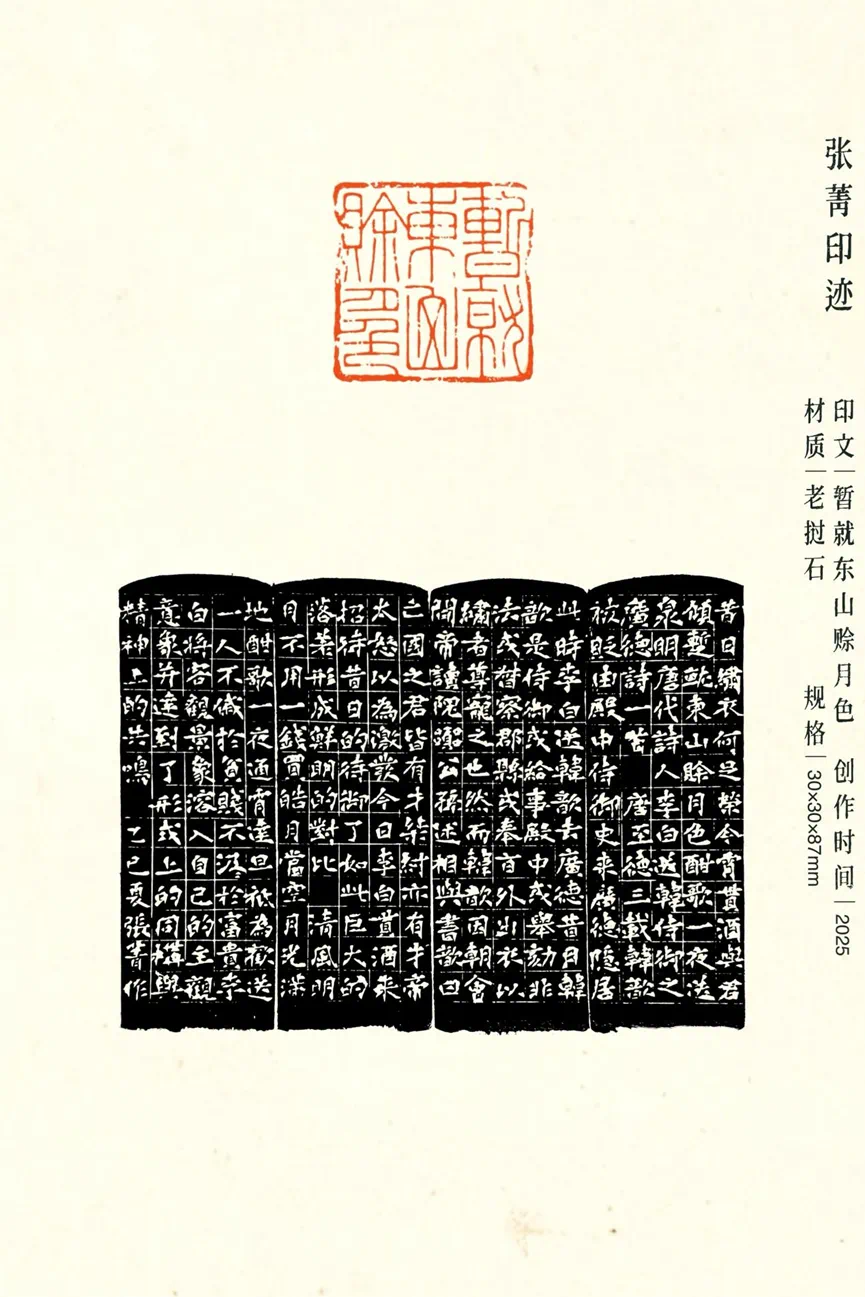 张菁印迹
印文｜暂就东山赊月色 创作时间｜2025
材质｜老挝石 规格｜30×30×87mm
暫就東山賒月色
昔日繡衣何足榮今宵貰酒與君
傾暫就東山賒月色酣歌一夜送
泉明唐代詩人李白送韓侍御之
廣德詩一首 唐至德三載韓歆
被貶由殿中侍御史来廣德隱居
此時李白送韓歆去廣德昔日韓
歆是侍御或給事殿中或舉劾非
法或督察郡縣或奉旨外出於以
繡者尊寵之也然而韓歆因朝會
聞帝讀隗囂公孫述相與書歆曰
亡國之君皆有才桀紂亦有才帝
大怒以為激發今日李白貰酒来
招待昔日的侍御了如此巨大的
落差形成鮮明的對比 清風明
月不用一錢買皓月當空月光洋
地酣歌一夜通宵達旦祇為歡送
一人不慽於貧賤不汲於富貴李
白將客觀景象溶入自己的主觀
意象并達到了形式上的同構與
精神上的共鳴 乙巳夏張菁作